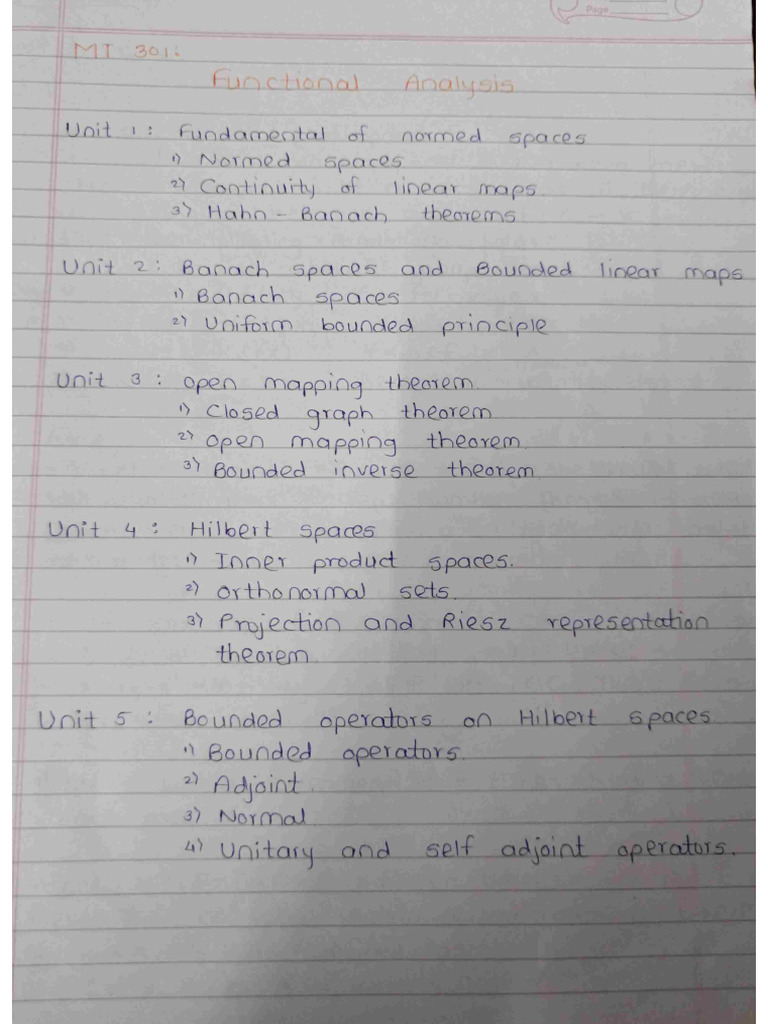 Page
MT 301:
Functional Analysis
Unit 1: Fundamental of normed spaces
1) Normed spaces
2) Continuity of linear maps
3) Hahn - Banach theorems
Unit 2: Banach spaces and Bounded linear maps
1) Banach spaces
2) Uniform bounded principle
Unit 3: Open mapping theorem
1) Closed graph theorem
2) Open mapping theorem
3) Bounded inverse theorem
Unit 4: Hilbert spaces
1) Inner product spaces.
2) Orthonormal sets.
3) Projection and Riesz representation
theorem
Unit 5: Bounded operators on Hilbert spaces
1) Bounded operators.
2) Adjoint.
3) Normal
4) Unitary and self adjoint operators.